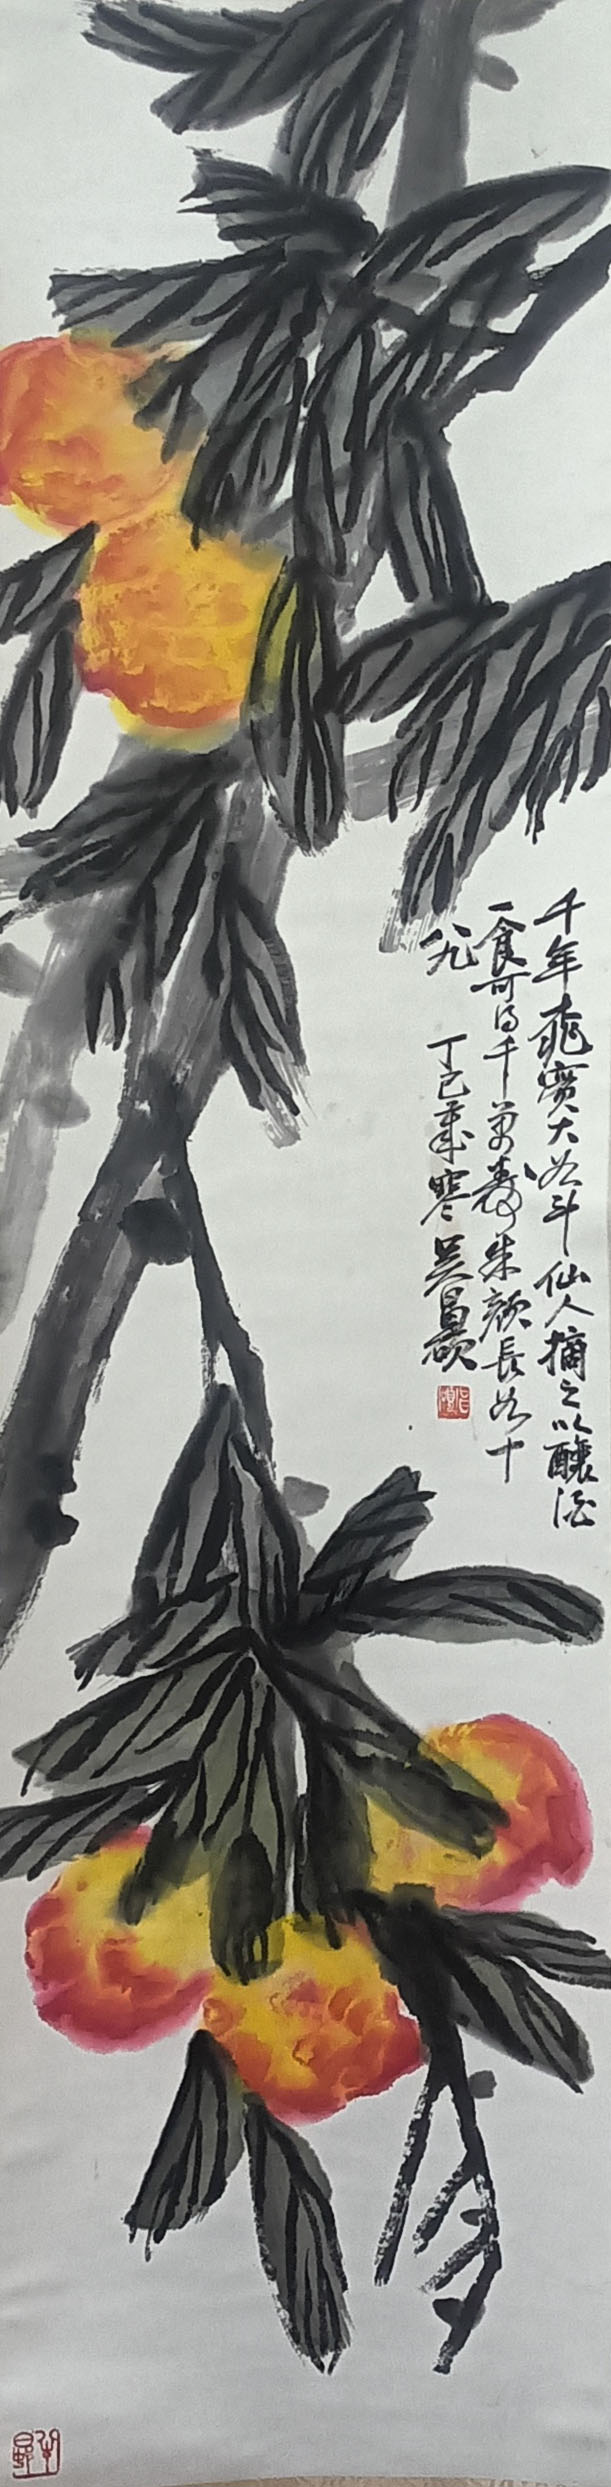 千年桃實大如斗仙人摘之以釀酒
一食可得千萬壽朱顏長如十
八九
丁巳歲寒吳昌碩